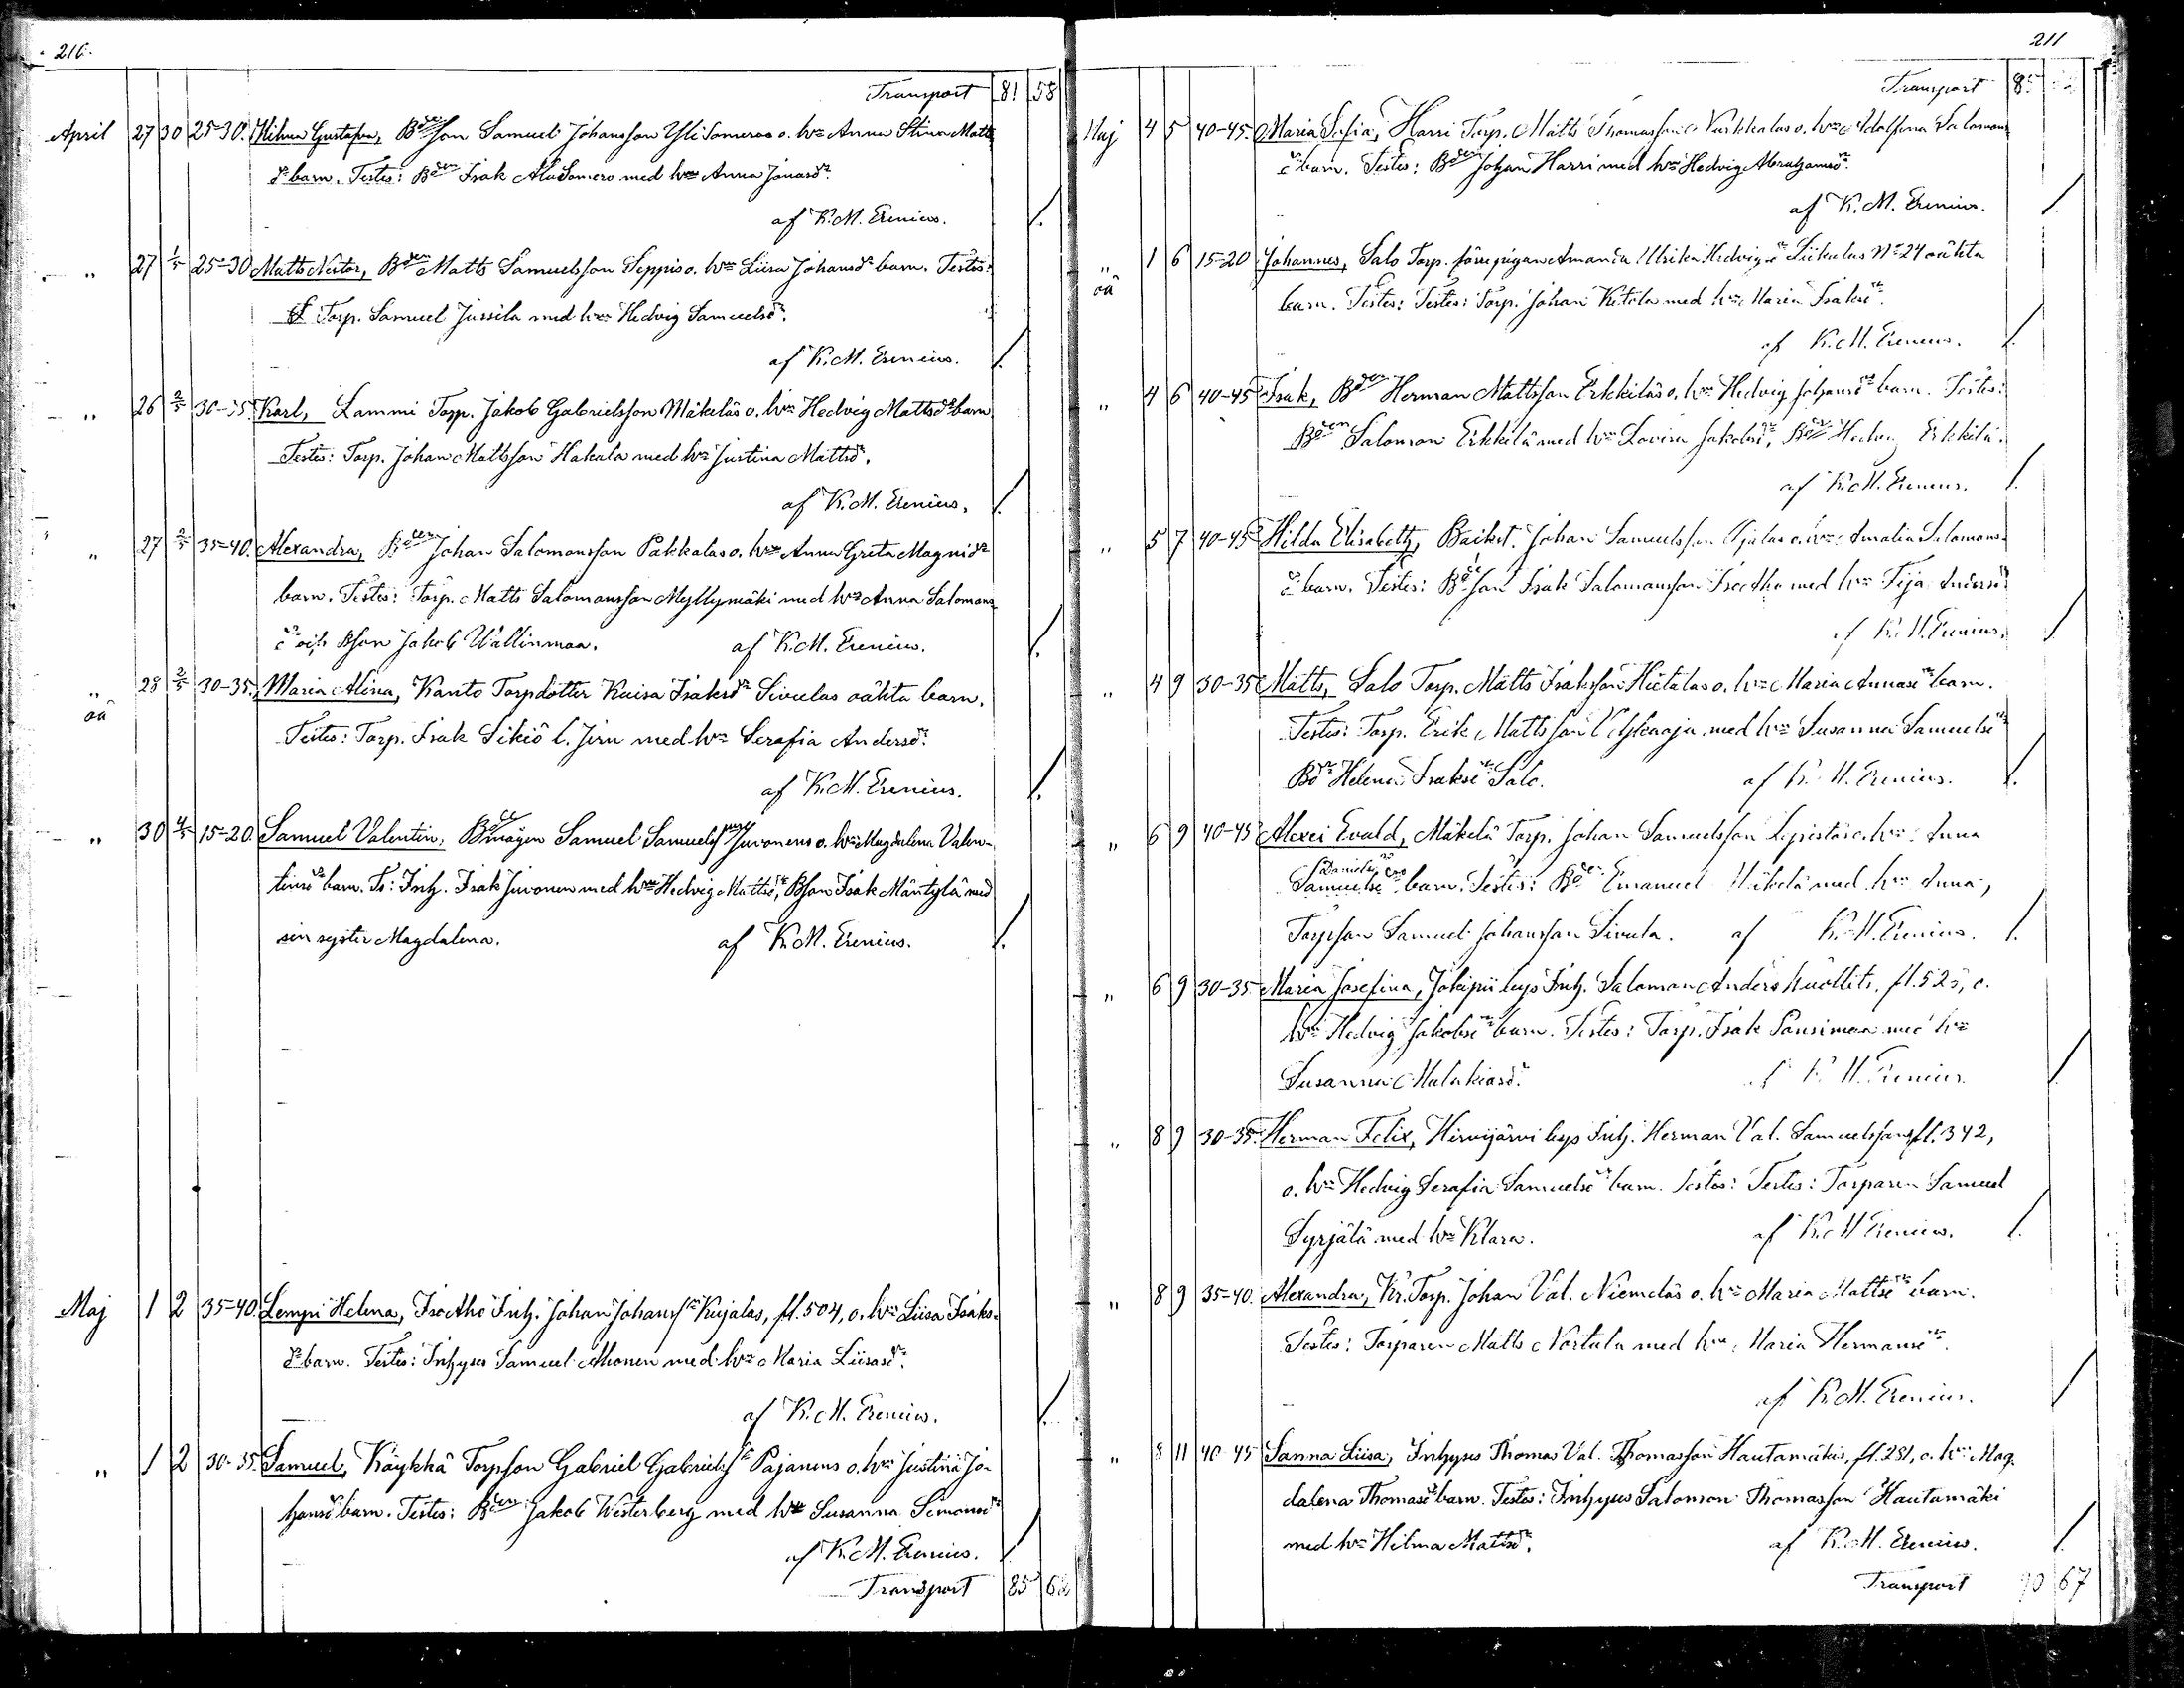 216.
Transport 81 58
April 27 30 25-30. Hilma Gustafva, Bdeson Samuel Johansson Yli Someros o. hu Anna Stina Matts
dr barn. Testes: Bden Isak Ala Somero med hu Anna Jonasdr
af K. M. Erenius. /.
" 27 1/5 25-30 Matts Nestor, Bden Matts Samuelsson Seppis o. hu Liisa Johansdr barn. Testes:
Torp. Samuel Jussila med hu Hedvig Samuelsdr.
af K. M. Erenius. /.
" 26 2/5 30-35 Karl, Lammi Torp. Jakob Gabrielsson Mäkeläs o. hu Hedvig Mattsdr barn
Testes: Torp. Johan Mattsson Hakala med hu Justina Mattsdr.
af K. M. Erenius. /.
" 27 2/5 35-40. Alexandra, Bden Johan Salomonsson Pakkalas o. hu Anna Greta Magnidr
barn. Testes: Torp. Matts Salomonsson Myllymäki med hu Anna Salomons
dr och Bson Jakob Wallinmaa. af K. M. Erenius. /.
" 28 2/5 30-35. Maria Alina, Kanto Torpdotter Kaisa Isaksdr Sivulas oähta barn.
oä
Testes: Torp. Isak Sikiö l. Jern med hu Serafia Andersdr.
af K. M. Erenius. /.
" 30 4/5 15-20. Samuel Valentin, Bdemågen Samuel Samuelss Juvonens o. hu Magdalena Valen-
tinsdr barn. Ts: Inh. Isak Juvonen med hu Hedvig Mattsdr, Bson Isak Mäntylä med
sin syster Magdalena. af K. M. Erenius. /.
Maj 1 2 35-40. Lempi Helena, Isotho Inh. Johan Johanss Kujalas, fl. 504, o. hu Liisa Isaks-
dr barn. Testes: Inhyses Samuel Ahonen med hu Maria Liisasdr.
af K. M. Erenius. /.
" 1 2 30-35. Samuel, Käykkä Torpson Gabriel Gabrielss Pajanens o. hu Justina Jo-
hansdr barn. Testes: Bden Jakob Westerberg med hu Susanna Simonsdr
af K. M. Erenius. /
Transport 85 62
211
Transport 85
Maj 4 5 40-45. Maria Sofia, Harri Torp. Matts Thomasson Karkkalas o. hu Adolfina Salomons
dr barn. Testes: Bden Johan Harri med hu Hedvig Abrahamsdr.
af K. M. Erenius. /.
" 1 6 15-20 Johannes, Salo Torp. Amanda Ulrika Hedvigsdr Liikalas No 24 oähta
oä
barn. Testes: Testes: Torp. Johan Ketola med hu Maria Isaksdr.
af K. M. Erenius. /.
" 4 6 40-45 Isak, Bden Herman Mattsson Erkkiläs o. hu Hedvig Johansdr barn. Testes:
Bden Salomon Erkkilä med hu Lovisa Jakobsdr, Erkkilä.
af K. M. Erenius. /.
" 5 7 40-45 Hilda Elisabeth, Johan Samuelsson o. hu Amalia Salomons-
dr barn. Testes: Bdeson Isak Salomonsson Isotho med hu Fija Andersdr
af K. M. Erenius. /
" 4 9 30-35 Matts, Salo Torp. Matts Isaksson Hietalas o. hu Maria Annasdr barn.
Testes: Torp. Erik Mattsson Ylikaaja med hu Susanna Samuelsdr
Helena Isaksdr Salo. af K. M. Erenius. /.
" 6 9 40-45 Alexei Evald, Mäkelä Torp. Johan Samuelsson o. hu Anna
Danielsdr
Samuelsdr barn. Testes: Bden Emanuel Mäkelä med hu Anna,
Torpson Samuel Johansson Sivula. af K. M. Erenius. /.
" 6 9 30-35 Maria Josefina, Jokipii hys Inh. Salomon Anders fl. 525, o.
hu Hedvig Jakobsdr barn. Testes: Torp. Isak Pansimaa med hu
Susanna Malakiasdr. af K. M. Erenius /
" 8 9 30-35. Herman Felix, Hirvijärvi hys Inh. Herman Val. Samuelssons fl. 342,
o. hu Hedvig Serafia Samuelsdr barn. Testes: Testes: Torparen Samuel
Syrjälä med hu Klara. af K. M. Erenius. /.
" 8 9 35-40. Alexandra, Kr. Torp. Johan Val. Niemeläs o. hu Maria Mattsdr barn.
Testes: Torparen Matts Nortala med hu Maria Hermansdr.
af K. M. Erenius. /
" 8 11 40-45 Sanna Liisa, Inhyses Thomas Val. Thomasson Hautamäkis, fl. 281, o. hu Mag-
dalena Thomasdr barn. Testes: Inhyses Salomon Thomasson Hautamäki
med hu Hilma Mattsdr. af K. M. Erenius. /.
Transport 90 67